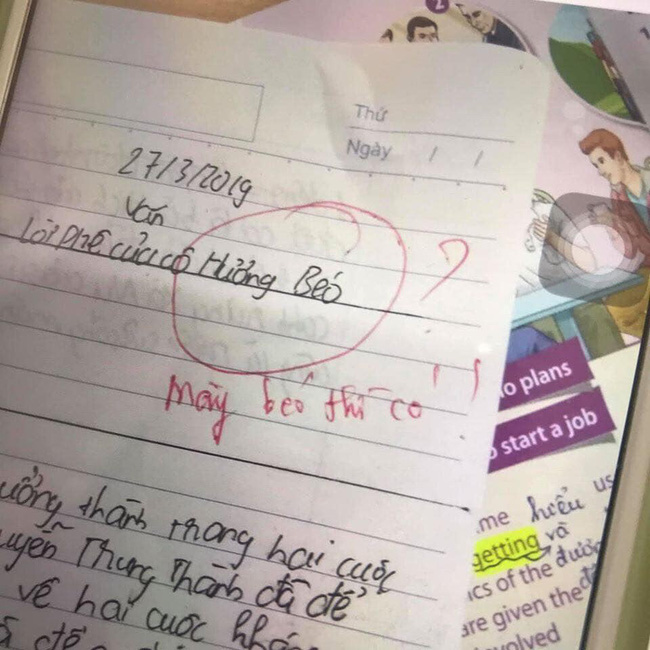 Thứ
Ngày / /
27/3/2019
Văn
Lời phê của cô Hưởng Béo
?
Mày béo thì có !!
thành trong hai cuộc
Trung Thành đã để
về hai cuộc
để
plans
start a job
me hiểu us
getting và
ics of the được
are given the